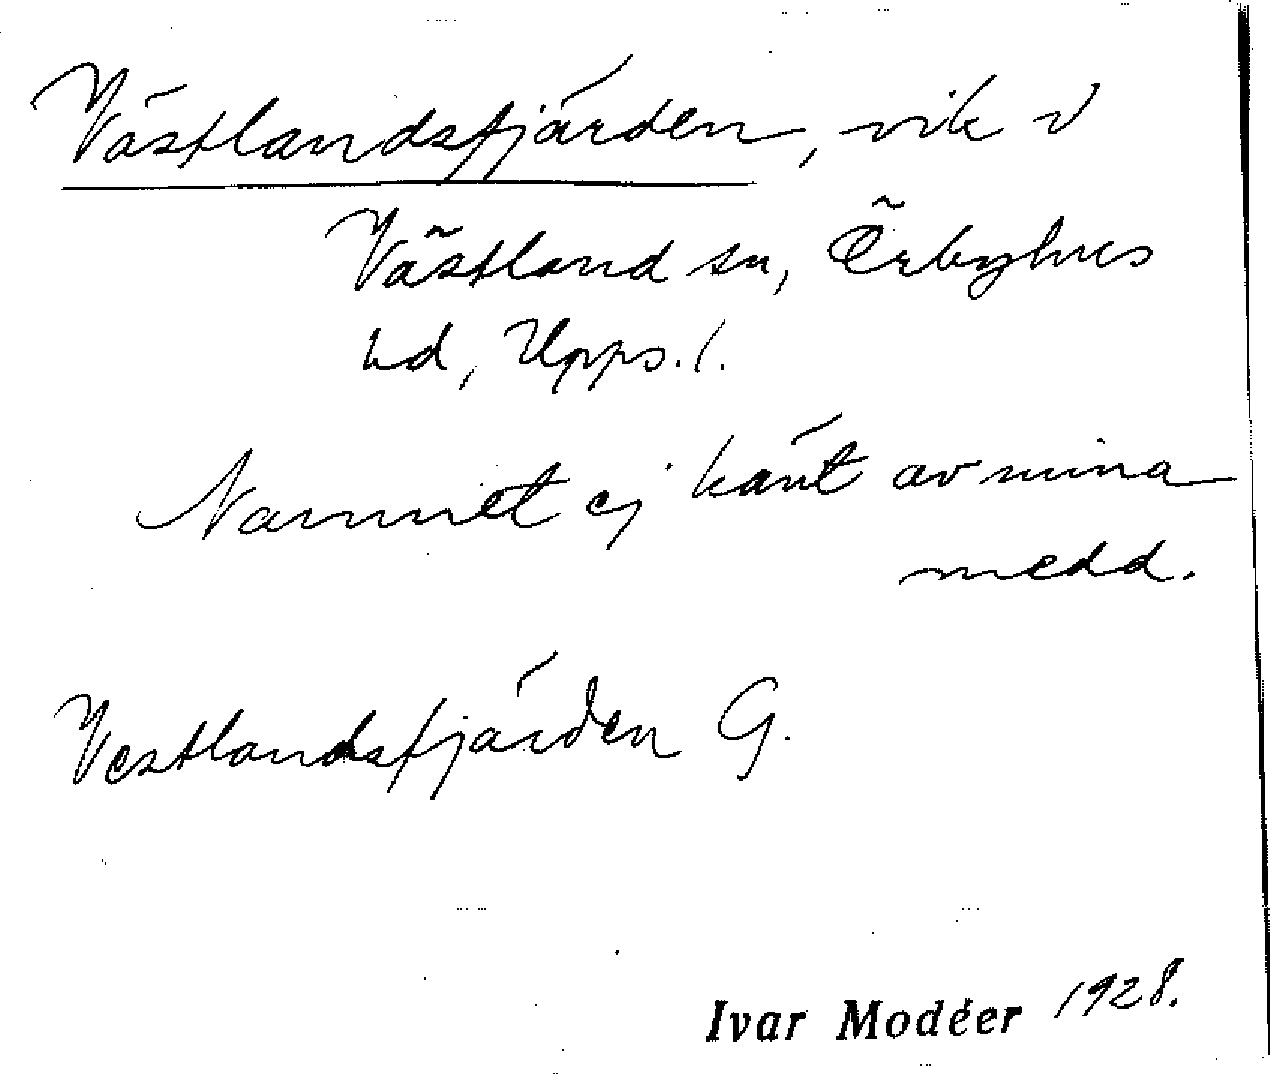 Västlandsfjärden, vik v
Västland sn, Örbyhus
hd, Upps. l.
Namnet ej känt av mina
medd.
Vestlandsfjärden G.
Ivar Modéer 1928.